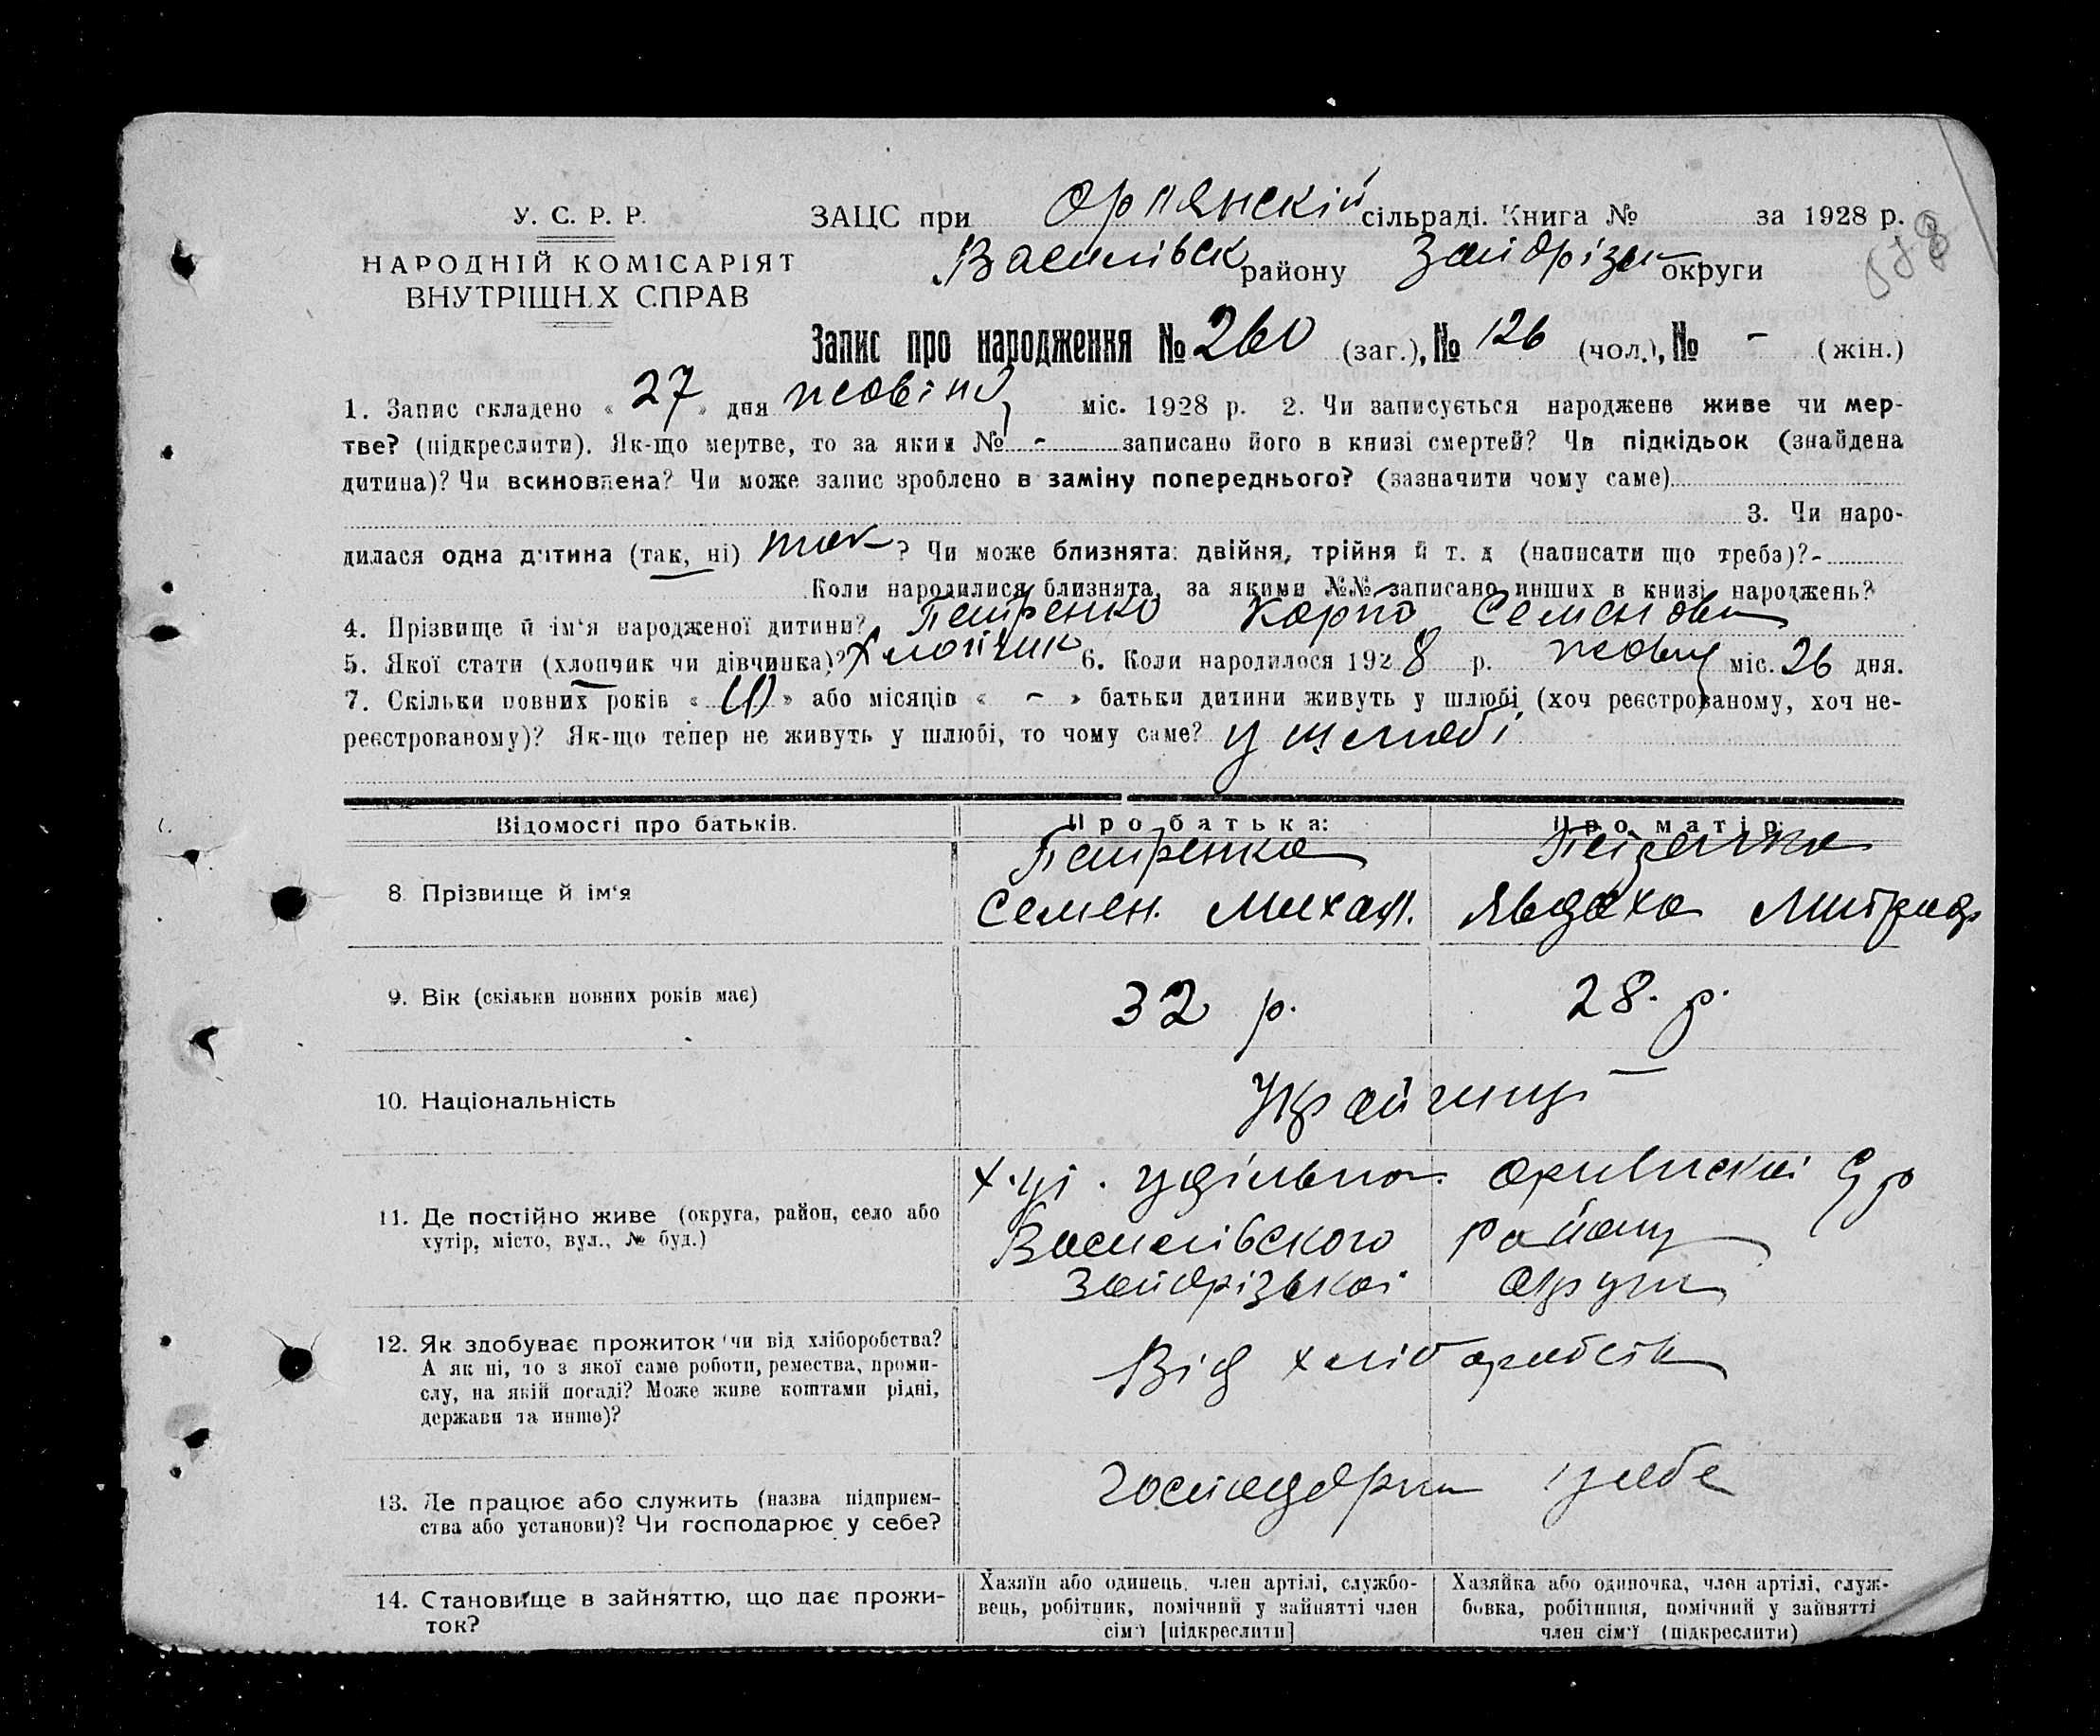 У. С. Р. Р.
НАРОДНІЙ КОМІСАРІЯТ
ВНУТРІШНІХ СПРАВ
ЗАЦС при Орлянскій сільраді. Книга № за 1928 р.
Василівськ району Запоріз округи
Запис про народження № 260 (заг.), № 126 (чол.), № - (жін.)
1. Запис складено « 27 » дня жовтня міс. 1928 р. 2. Чи записується народжене живе чи мер-
тве? (підкреслити). Як-що мертве, то за яким № - записано його в книзі смертей? Чи підкідьок (знайдена
дитина)? Чи всиновлена? Чи може запис зроблено в заміну попереднього? (зазначити чому саме)
3. Чи наро-
дилася одна дитина (так, ні) так ? Чи може близнята: двійня, трійня й т. д (написати що треба)?-
Коли народилися близнята, за якими №№ записано инших в книзі народжень?
4. Прізвище й ім'я народженої дитини? Петренко Карпо Семенович
5. Якої стати (хлопчик чи дівчинка)? Хлопчик 6. Коли народилося 1928 р. жовт міс. 26 дня.
7. Скільки повних років « » або місяців « - » батьки дитини живуть у шлюбі (хоч реєстрованому, хоч не-
реєстрованому)? Як-що тепер не живуть у шлюбі, то чому саме? у шлюбі
Відомості про батьків. Про батька: Про матір:
8. Прізвище й ім'я
Петренко
Семен. Михайл.
Петренко
Явдоха Митроф
9. Вік (скільки повних років має) 32 р. 28. р.
10. Національність Українці
11. Де постійно живе (округа, район, село або
хутір, місто, вул., № буд.)
Орлянскої С р
Василівского району
Запорізької округи
12. Як здобуває прожиток чи від хліборобства?
А як ні, то з якої саме роботи, ремества, проми-
слу, на якій посаді? Може живе коштами рідні,
держави та инше)?
Від хліборобств
13. Де працює або служить (назва підприєм-
ства або установи)? Чи господарює у себе?
господарки у себе
14. Становище в зайняттю, що дає прожи-
ток?
Хазяїн або одинець, член артілі, службо-
вець, робітник, помічний у зайнятті член
сім'ї [підкреслити]
Хазяйка або одиночка, член артілі, служ-
бовка, робітниця, помічний у зайнятті
член сім'ї (підкреслити)